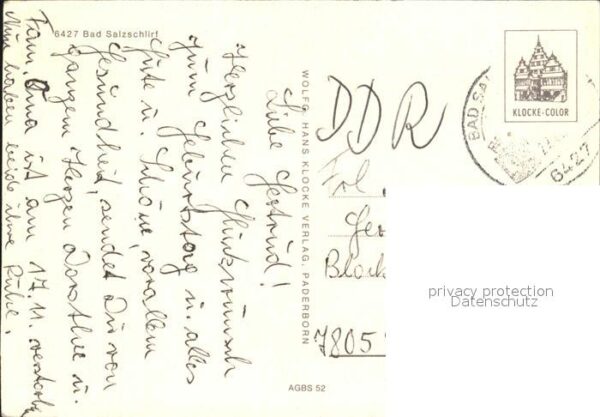 6427 Bad Salzschlirf
Liebe Gertrud!
Herzlichen Glückwunsch
zum Geburtstag u. alles
Gute u. Schöne, vorallem
Gesundheit, sendet Dir von
ganzem Herzen Dorothee u.
Fam. Oma ist am 17.11. verstorben
Nun haben beide ihre Ruhe.
WOLFG. HANS KLOCKE VERLAG, PADERBORN
AGBS 52
KLOCKE-COLOR
BAD SAL
6427
DDR
Frl.
Ger
Block
7805
privacy protection
Datenschutz